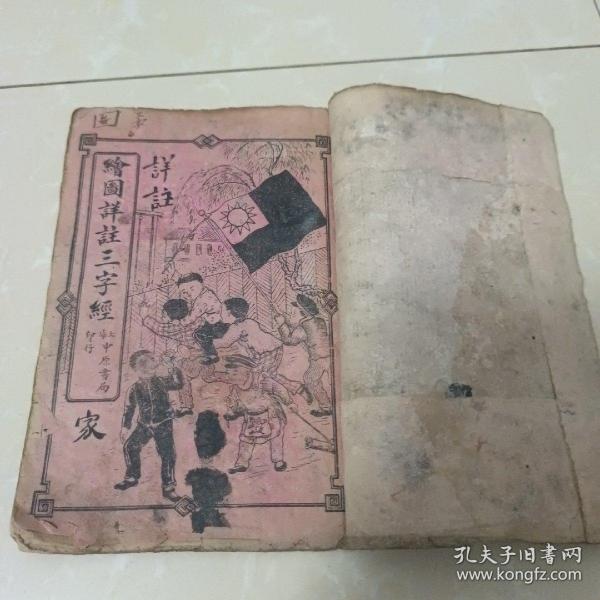 詳註
繪圖詳註三字經
上海中原書局
印行
家
孔夫子旧书网
www.kongfz.com